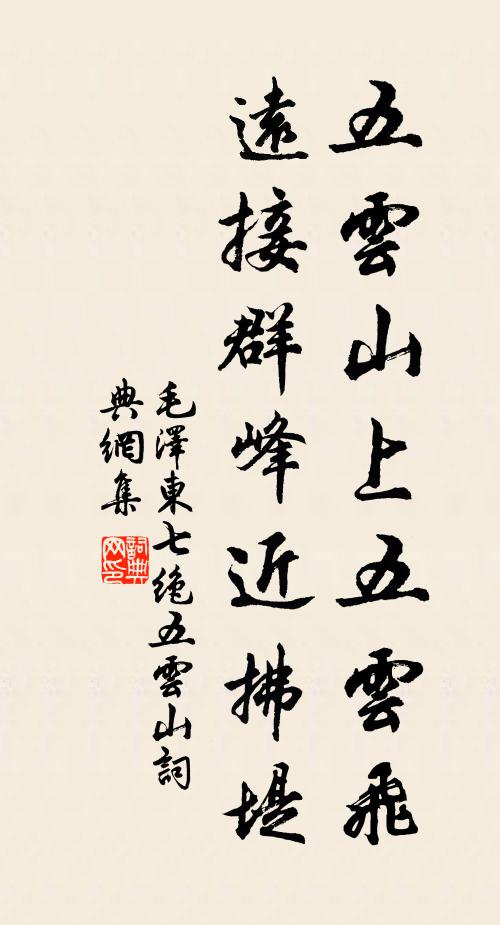 五雲山上五雲飛
遠接群峰近拂堤
毛澤東七絶五雲山詞
典網集
詞典
网印